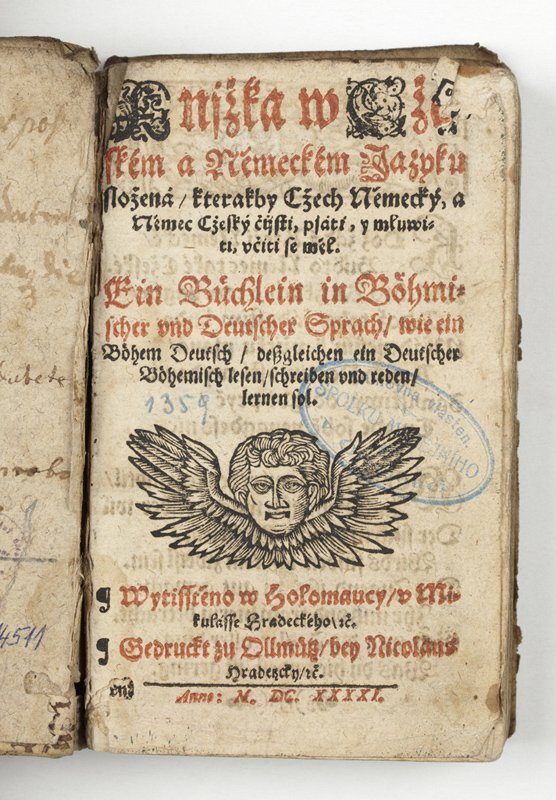 Knjžka w Cže
ském a Německém Jazyku
složená / kterakby Cžech Německý, a
Němec Cžeský čijsti, psáti, y mluwi-
ti, včiti se měl.
Ein Büchlein in Böhmi-
scher vnd Deutscher Sprach / wie ein
Böhem Deutsch / deßgleichen ein Deutscher
Böhemisch lesen / schreiben vnd reden /
lernen sol.
1359
¶ Wytisstěno w Holomaucy / v Mi-
kulásse Hradeckého / ꝛč.
¶ Gedruckt zu Ollmütz / bey Nicolaus
Hradetzcky / ꝛč.
Anno: M. DC. XXXXI.
4511